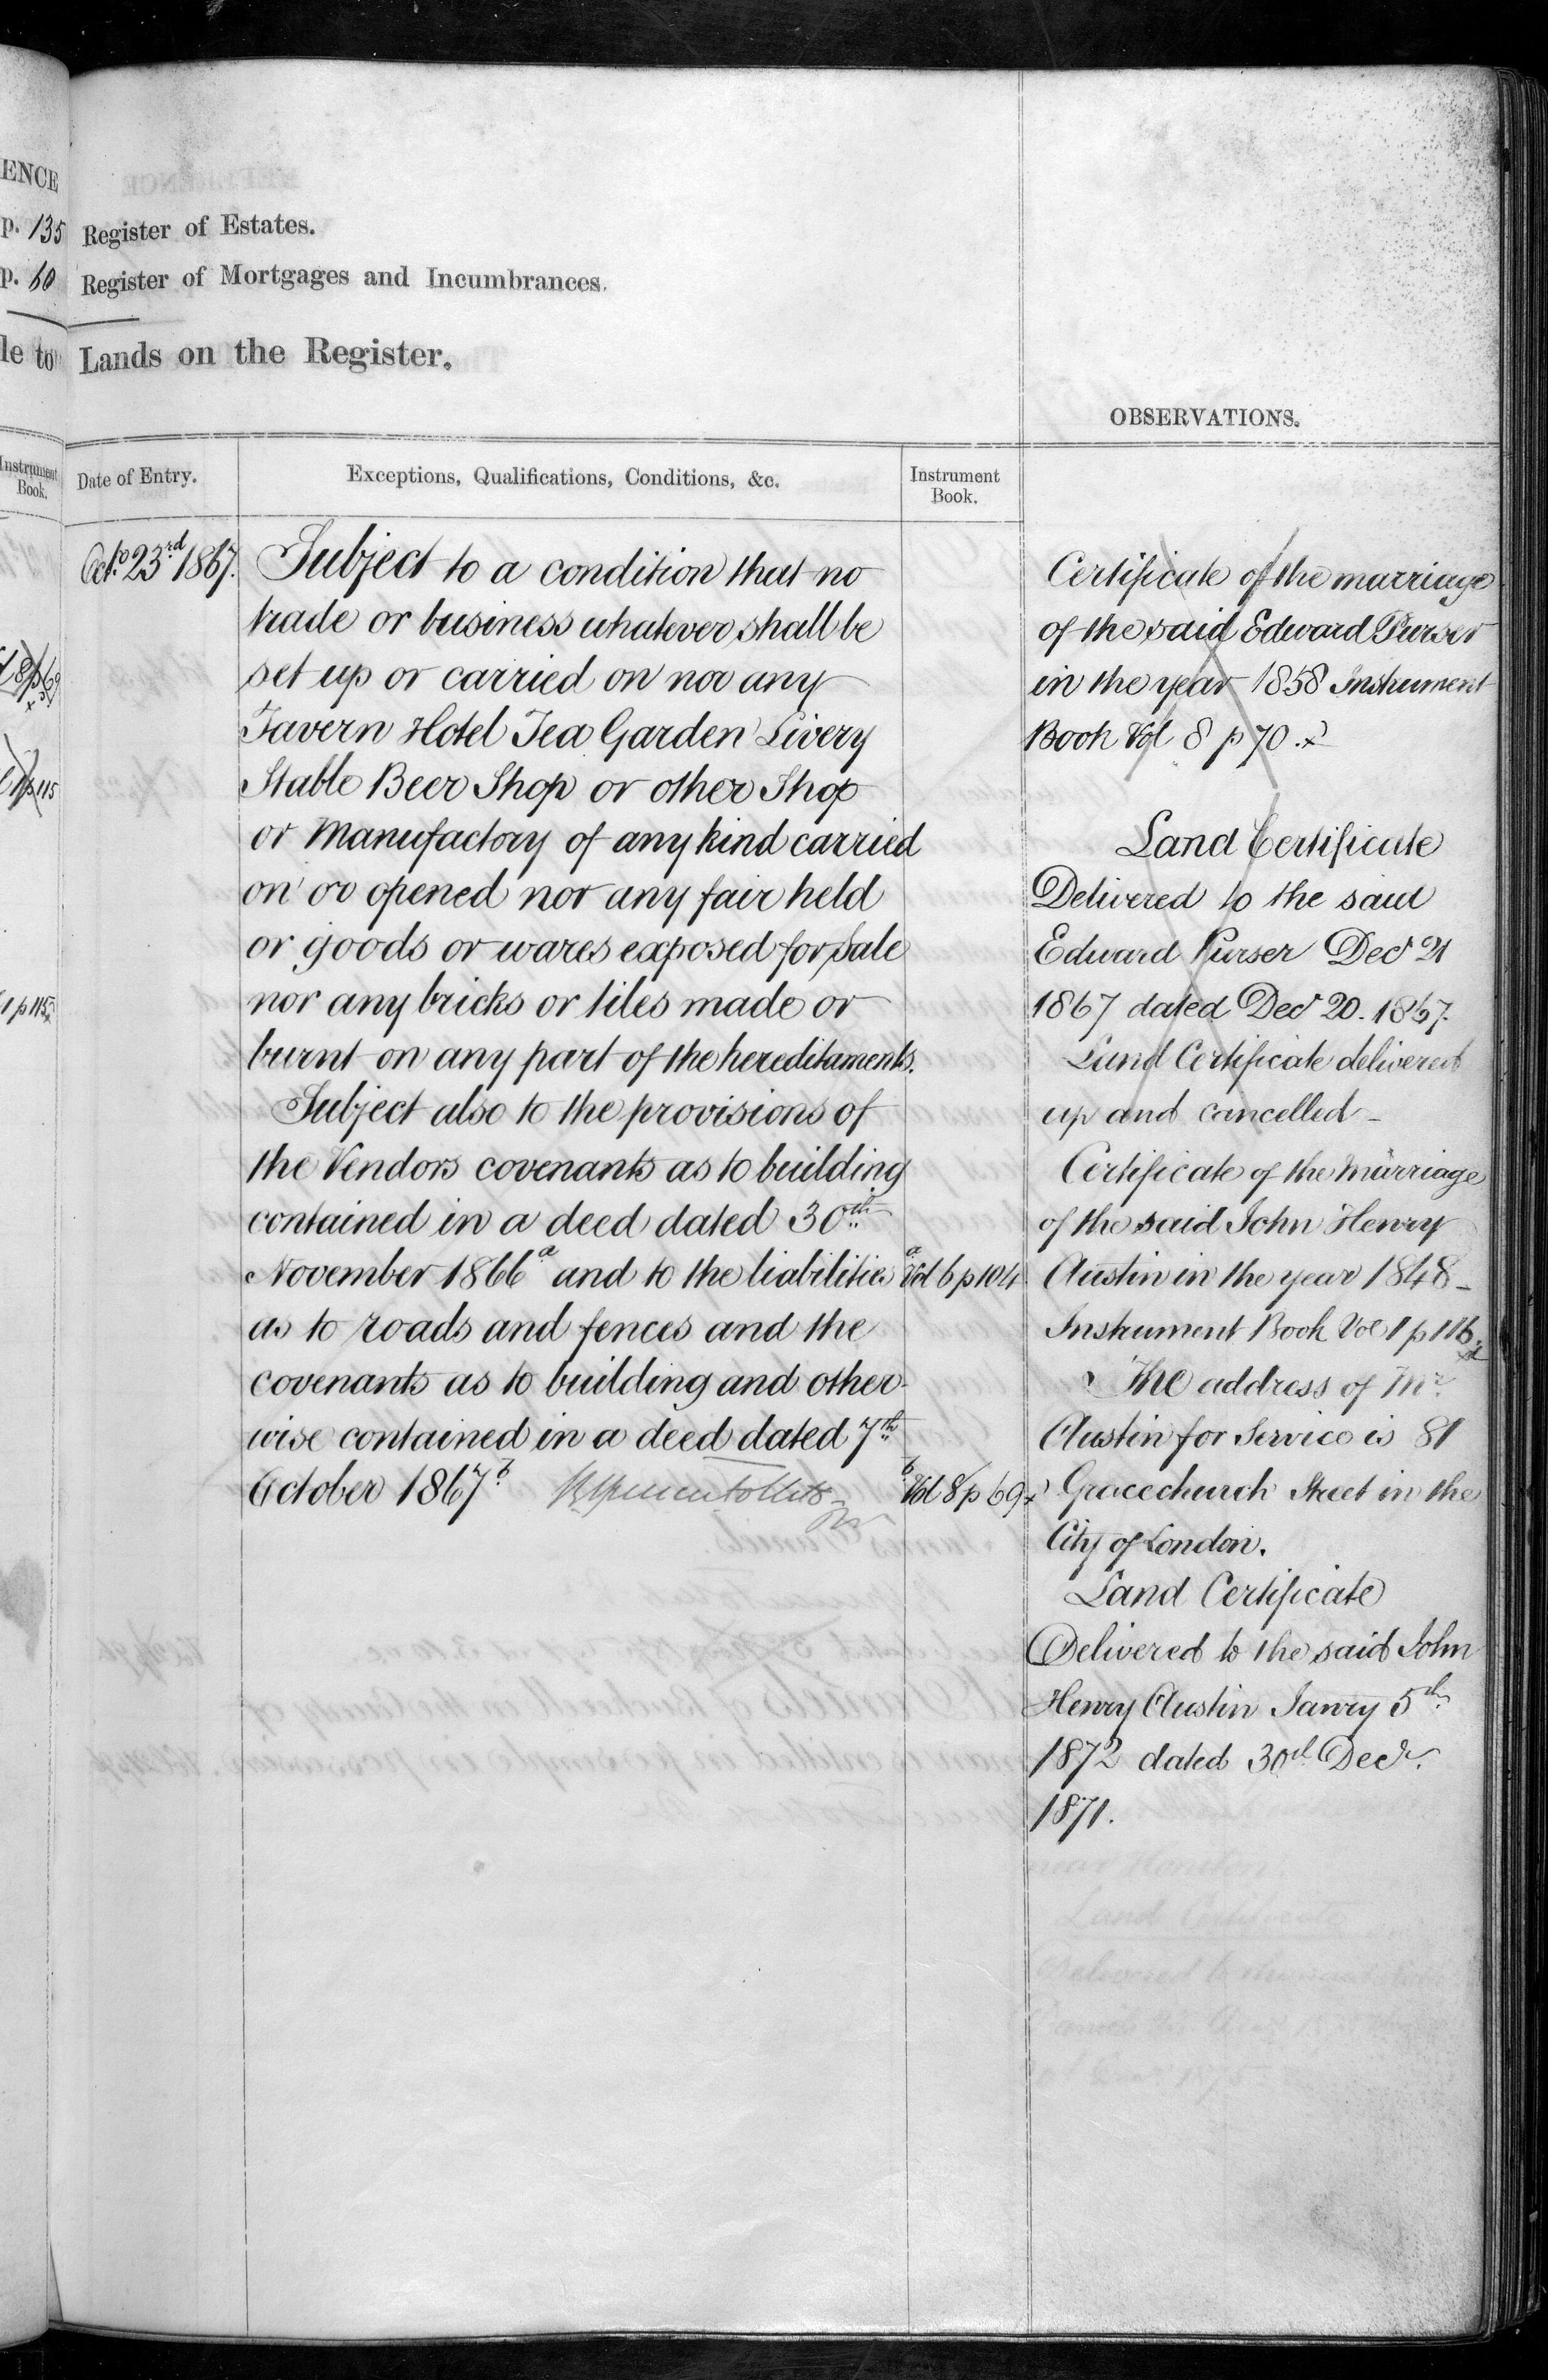 ENCE
p. 135 Register of Estates.
p. 60 Register of Mortgages and Incumbrances.
le to Lands on the Register.
OBSERVATIONS.
Instrument Book.
Date of Entry.
Exceptions, Qualifications, Conditions, &c.
Instrument Book.
Octo. 23rd 1867.
Subject to a condition that no
trade or business whatever shall be
set up or carried on nor any
Tavern Hotel Tea Garden Livery
Stable Beer Shop or other Shop
or Manufactory of any kind carried
on or opened nor any fair held
or goods or wares exposed for sale
nor any bricks or tiles made or
burnt on any part of the hereditaments.
Subject also to the provisions of
the Vendors covenants as to building
contained in a deed dated 30th
November 1866 a and to the liabilities
as to roads and fences and the
covenants as to building and other-
wise contained in a deed dated 7th
October 1867 b
a Vol 6 p 104
b Vol 8 p 69 x
Certificate of the marriage
of the said Edward Purser
in the year 1858 Instrument
Book Vol 8 p 70. x
Land Certificate
Delivered to the said
Edward Purser Decr 21
1867 dated Decr 20. 1867.
Land Certificate delivered
up and cancelled -
Certificate of the Marriage
of the said John Henry
Austin in the year 1848 -
Instrument Book Vol 1 p 116.
The address of Mr.
Austin for Service is 81
Gracechurch Street in the
City of London.
Land Certificate
Delivered to the said John
Henry Austin Janry 5th
1872 dated 30th Decr.
1871.